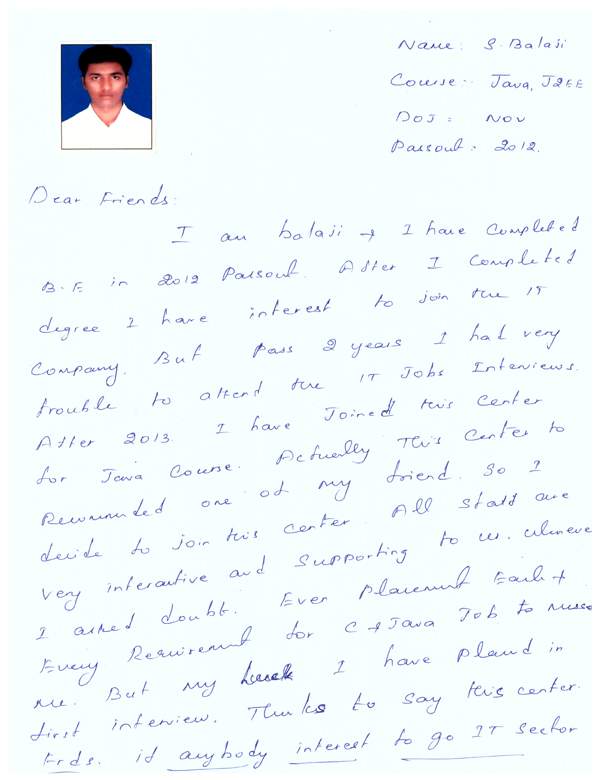 Name: S. Balaji
Course:- Java, J2EE
DOJ: NOV
Passout:- 2012.
Dear Friends:
I am balaji → I have Completed
B.E in 2012 Passout. After I Completed
degree I have interest to join the IT
Company. But Pass 2 years I had very
trouble to attend the IT Jobs Interviews.
After 2013. I have Joined this Center
for Java Course. Actually This Center to
Recommended one of my friend. So I
decide to join this center. All Staff are
very interactive and Supporting to us. Whenever
I asked doubt. Even Placement Each +
Every Requirement for C + Java Job to
me. But my luck I have placed in
first interview. Thanks to say this center.
Frds. if anybody interest to go IT Sector